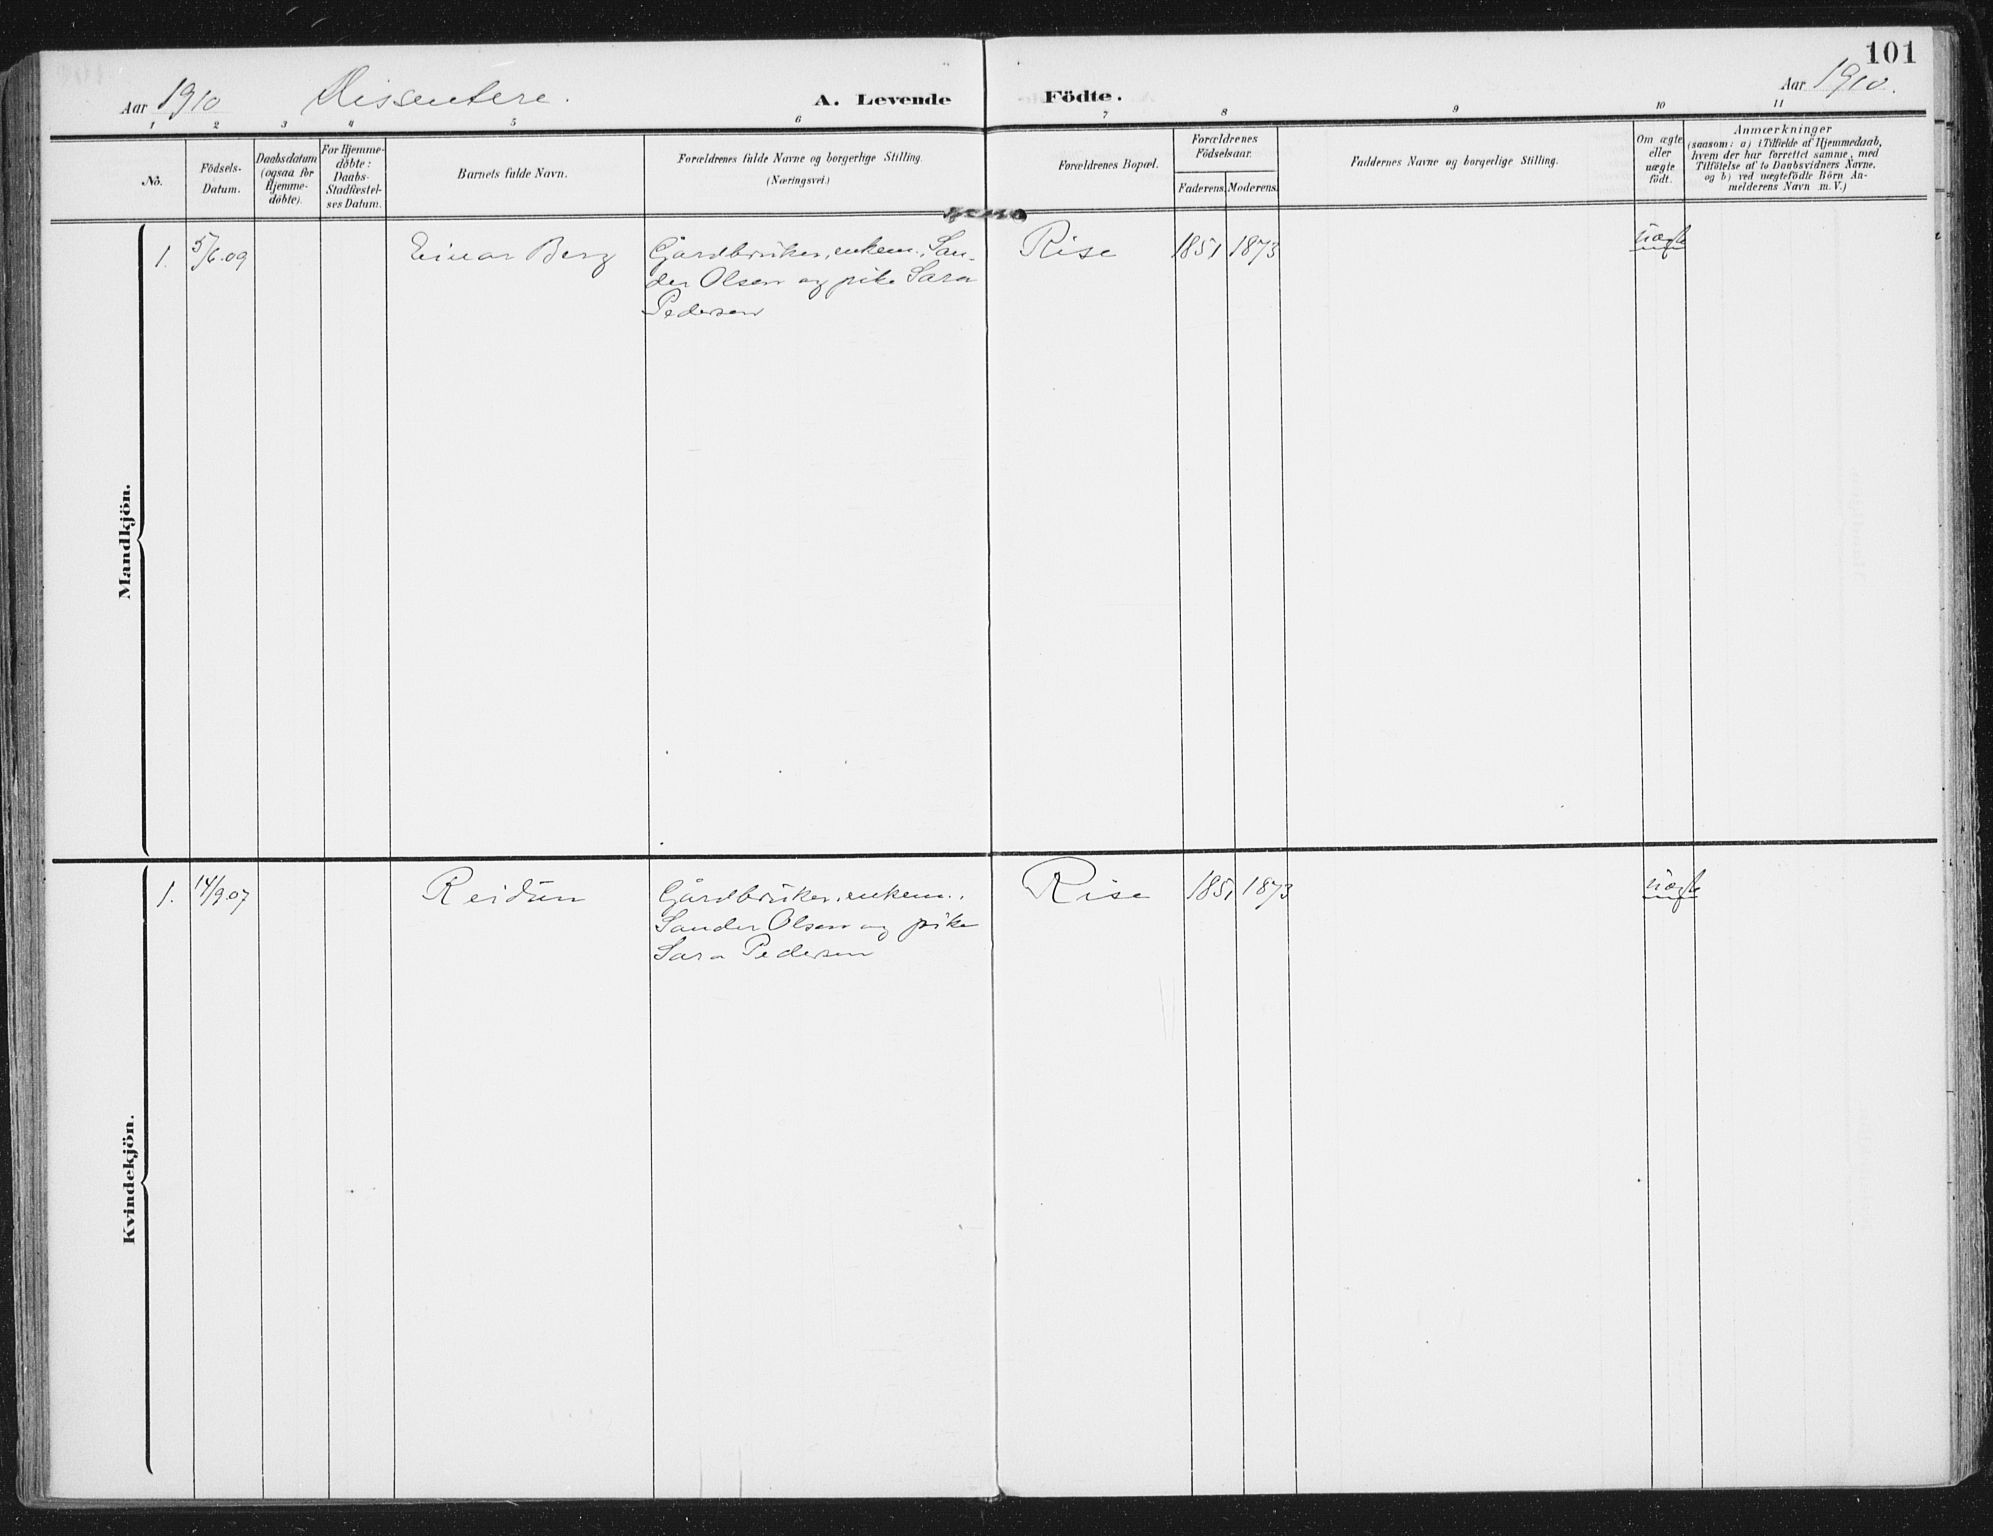 101
Aar 1910 Dissentere. A. Levende Födte. Aar 1910.
1 2 3 4 5 6 7 8 9 10 11
No.
Födsels-
Datum.
Daabsdatum
(ogsaa for
Hjemme-
döbte).
For Hjemme-
döbte:
Daabs-
Stadfæstel-
ses Datum.
Barnets fulde Navn.
Forældrenes fulde Navne og borgerlige Stilling.
(Næringsvei.)
Forældrenes Bopæl.
Forældrenes
Födselsaar.
Faderens. Moderens.
Faddernes Navne og borgerlige Stilling.
Om ægte
eller
uægte
födt.
Anmærkninger
(saasom: a) i Tilfælde af Hjemmedaab,
hvem der har forrettet samme, med
Tilföielse af to Daabsvidners Navne.
og b) ved uægtefödte Börn An-
melderens Navn m. V.)
Mandkjön.
1. 5/6.09 Einar Berg Gårdbruker, enkem., San-
der Olsen og pike Sara
Pedersen
Rise 1851 1873 uægte
Kvindekjön.
1. 14/9.07 Reidun Gårdbruker, enkem.,
Sander Olsen og pike
Sara Pedersen
Rise 1851 1873 uægte